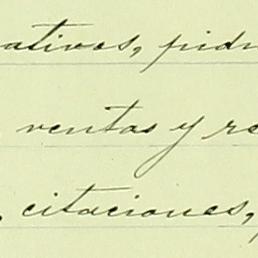 ativos, pidi
ventas y re
, citaciones,